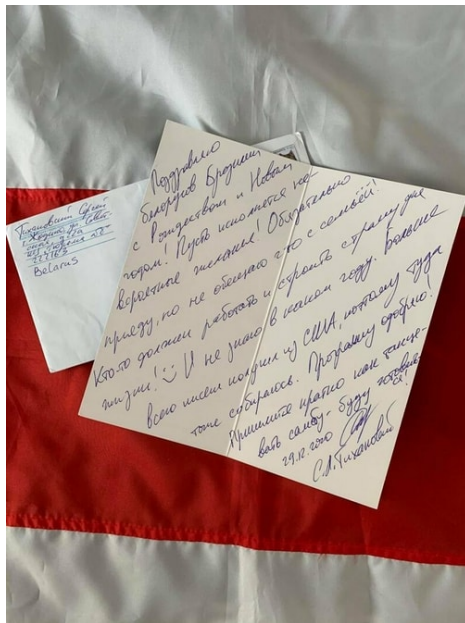 Тихановский Сергей
г. Жодино, ул. Совет-
ская, 22А
222163
Belarus
Поздравляю
белорусов Бразилии
с Рождеством и Новым
годом! Пусть исполнятся не-
вероятные желания! Обязательно
приеду, но не обещаю что с семьёй!
Кто-то должен работать и строить страну для
жизни! И не знаю в каком году. Больше
всего писем получил из США, поэтому туда
тоже собираюсь. Программу одобряю!
Пришлите кратко как танце-
вать самбу - буду готовить-
ся!
29.12.2020
С.Л. Тихановский